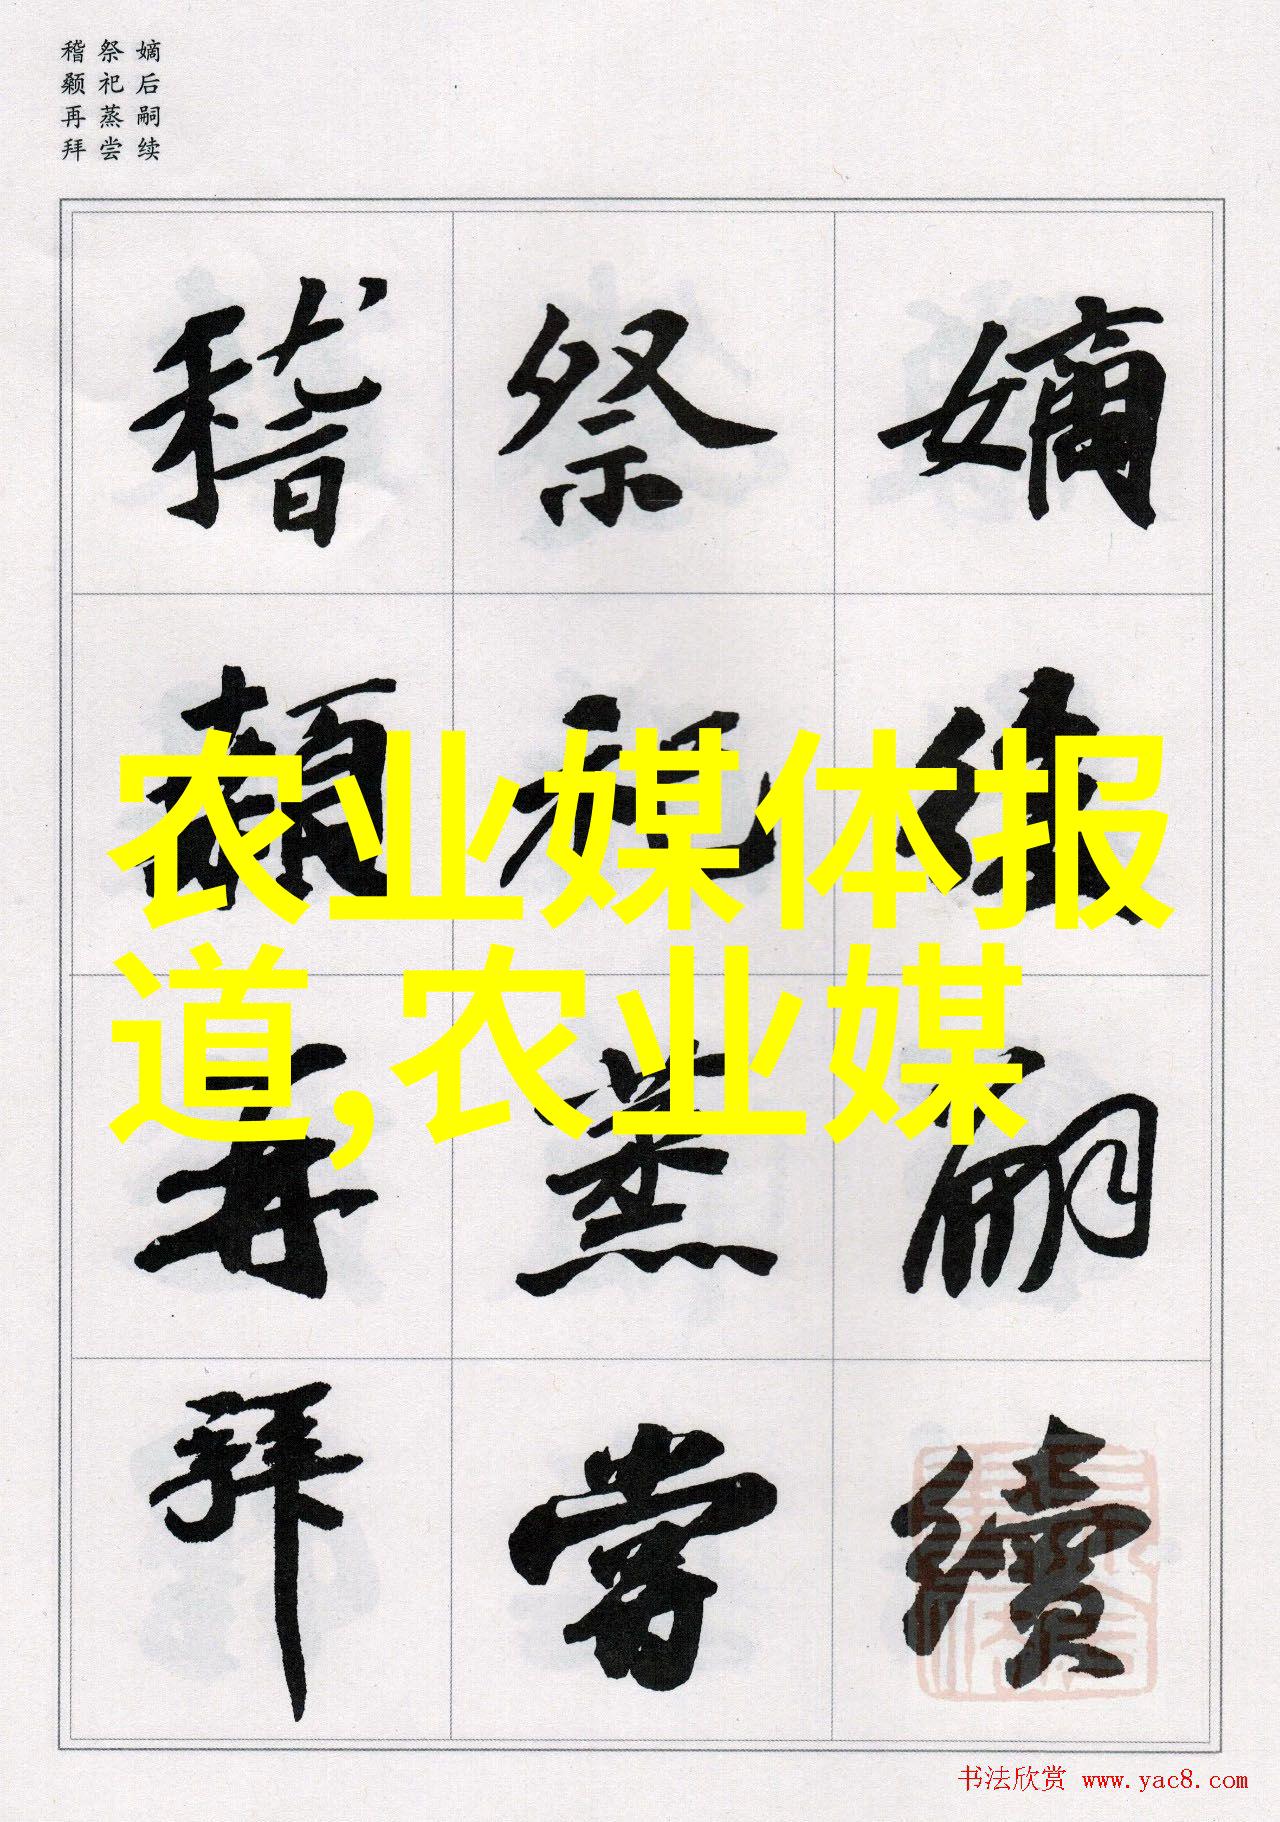 嫡后嗣续
祭祀蒸尝
稽颡再拜
嫡後嗣續
祭祀蒸嘗
稽顙再拜
农业媒体报
道,农业媒
书法欣赏 www.yac8.com